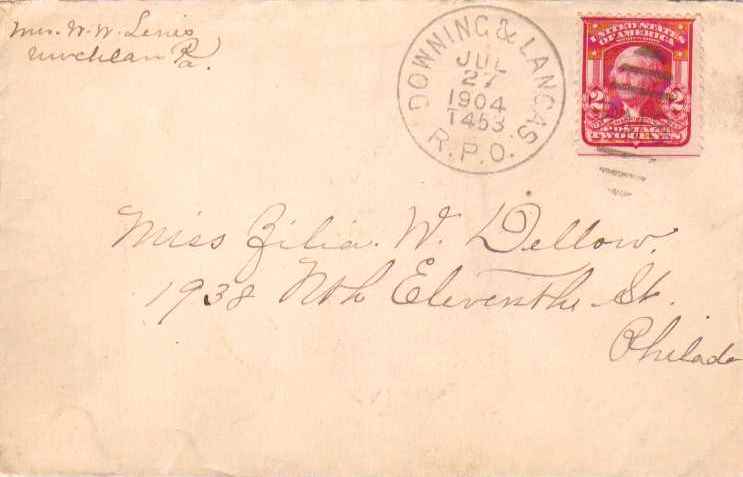 Mrs. W. W. Lewis
Uwchlan Pa.
DOWNING & LANCAS.
JUL
27
1904
T453
R.P.O.
UNITED STATES
OF AMERICA
2 2
POSTAGE
TWO CENTS
Miss Zilia. W. Dellow.
1938 Nth Eleventhe St.
Philada